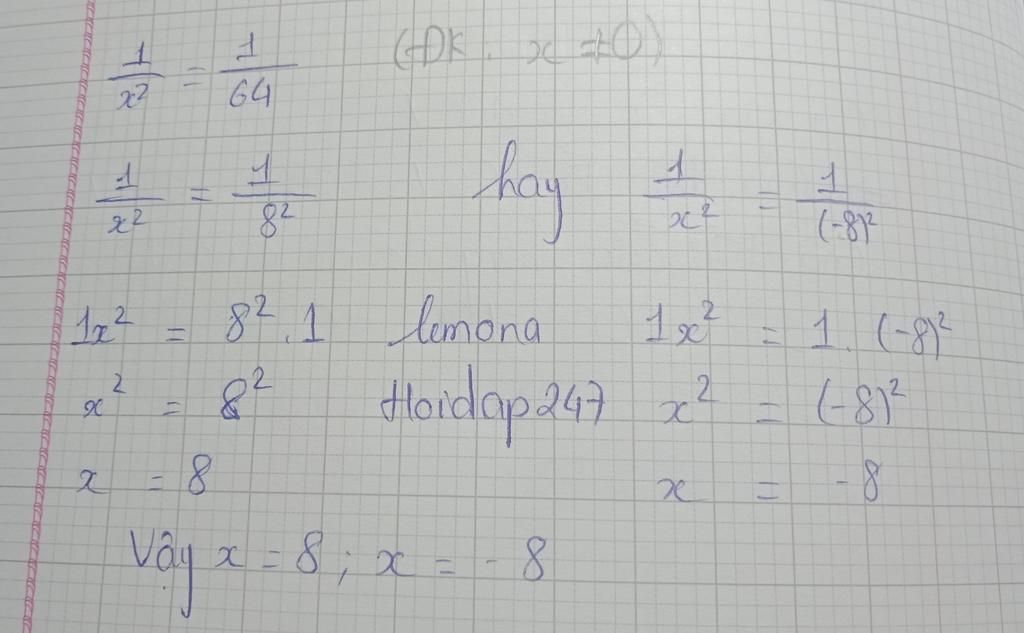 1/x² = 1/64 (ĐK: x ≠ 0)
1/x² = 1/8² hay 1/x² = 1/(-8)²
1x² = 8² . 1 lemona 1x² = 1 . (-8)²
x² = 8² Hoidap247 x² = (-8)²
x = 8 x = -8
Vậy x = 8 ; x = - 8